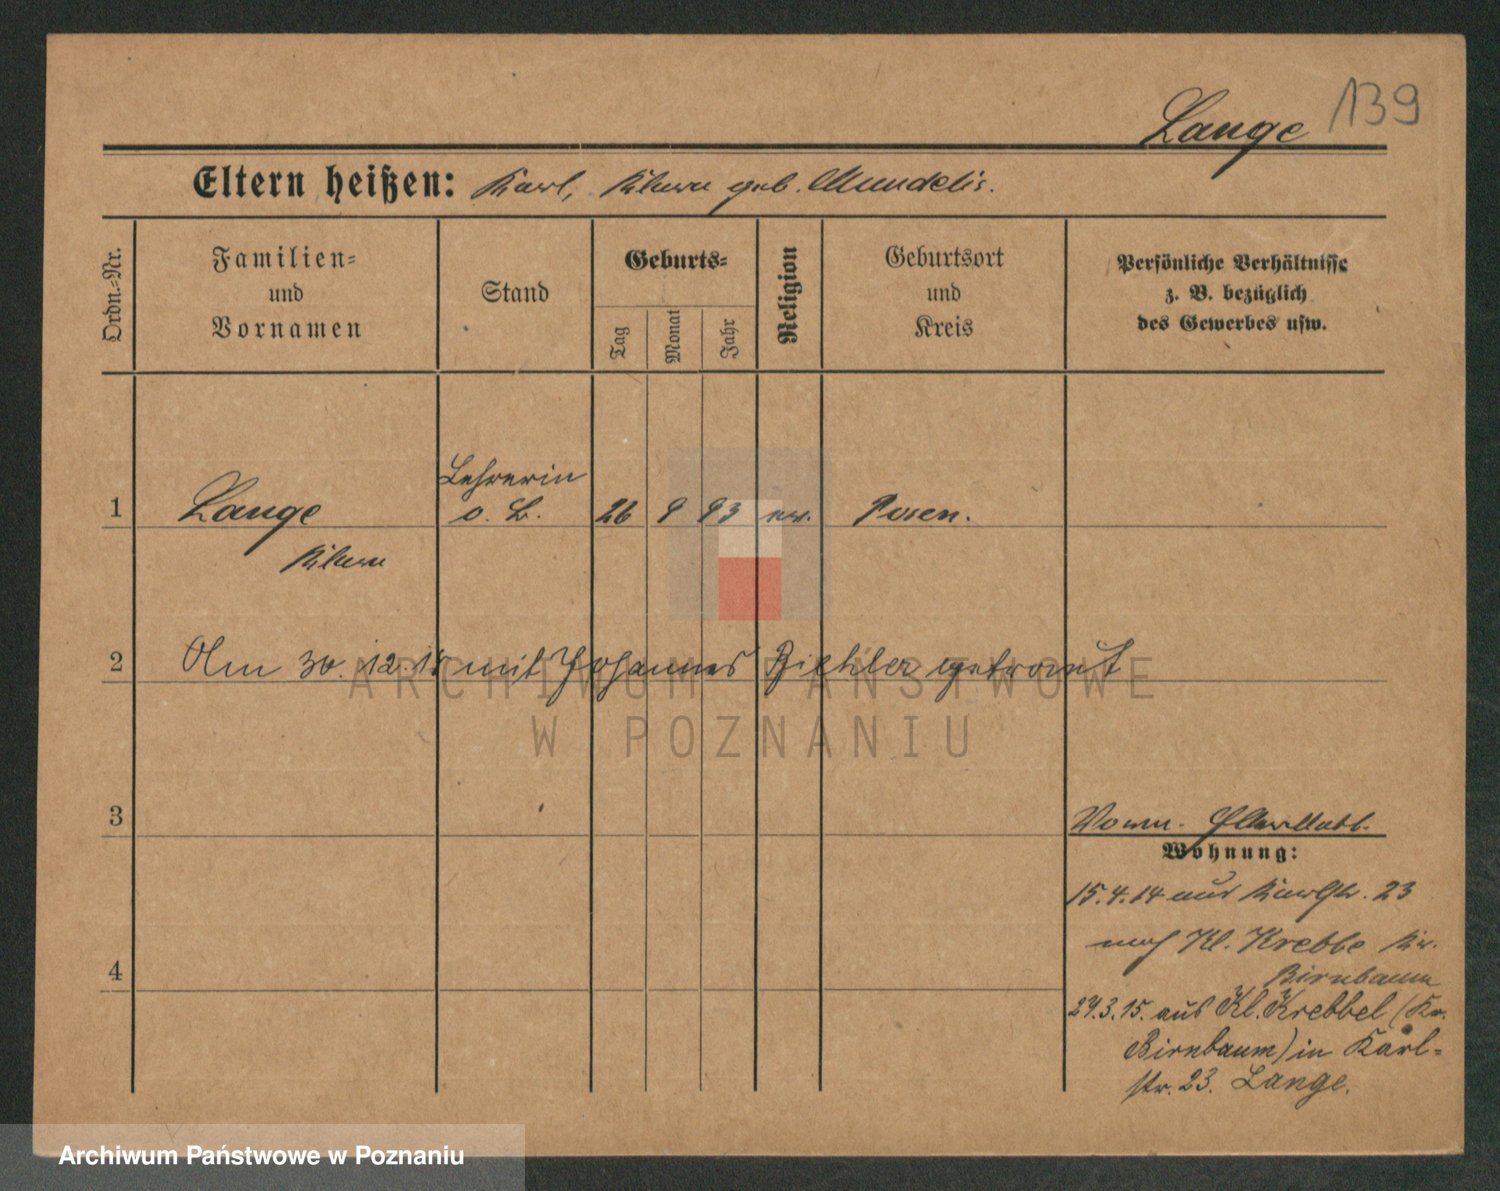 Lange 139
Eltern heißen: Karl, Klara geb. Mundelis.
Ordn.-Nr.
Familien-
und
Vornamen
Stand
Geburts-
Tag
Monat
Jahr
Religion
Geburtsort
und
Kreis
Persönliche Verhältnisse
z. B. bezüglich
des Gewerbes usw.
Lehrerin
1 Lange o. B. 26 9 93 ev. Posen.
Klara
2 Am 30.12.18 mit Johannes Biehler getraut
ARCHIWUM PAŃSTWOWE
W POZNANIU
3
Wohnung:
15.4.14 aus Karlstr. 23
nach Kl. Krebbe Kr.
Birnbaum
4
24.3.15. aus Kl. Krebbel (Kr.
Birnbaum) in Karl-
str. 23. Lange.
Archiwum Państwowe w Poznaniu